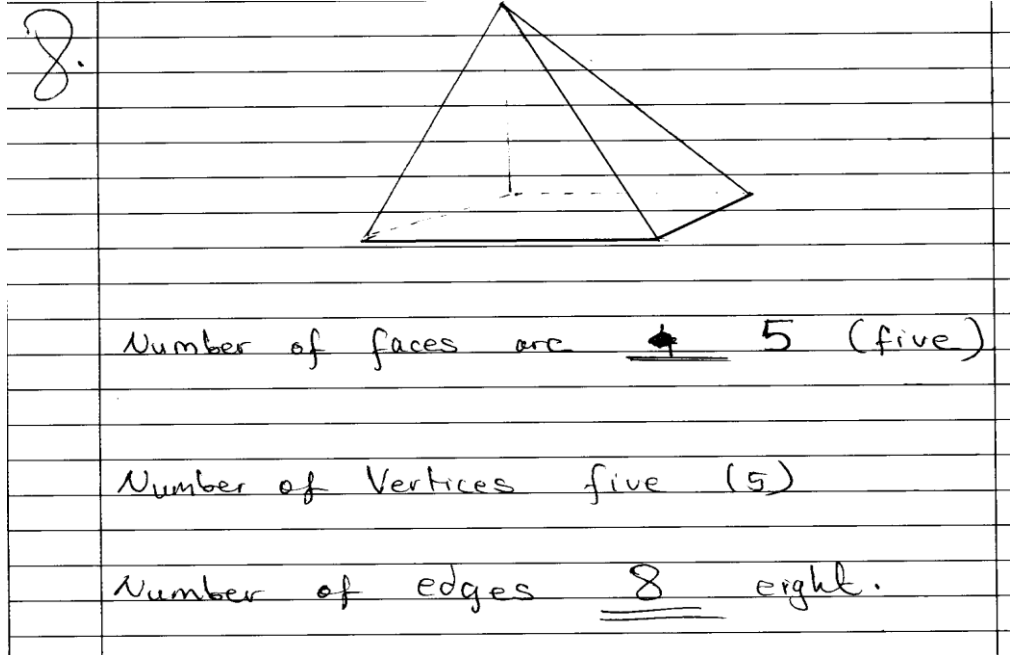 8.
Number of faces are 4 5 (five)
Number of Vertices five (5)
Number of edges 8 eight.